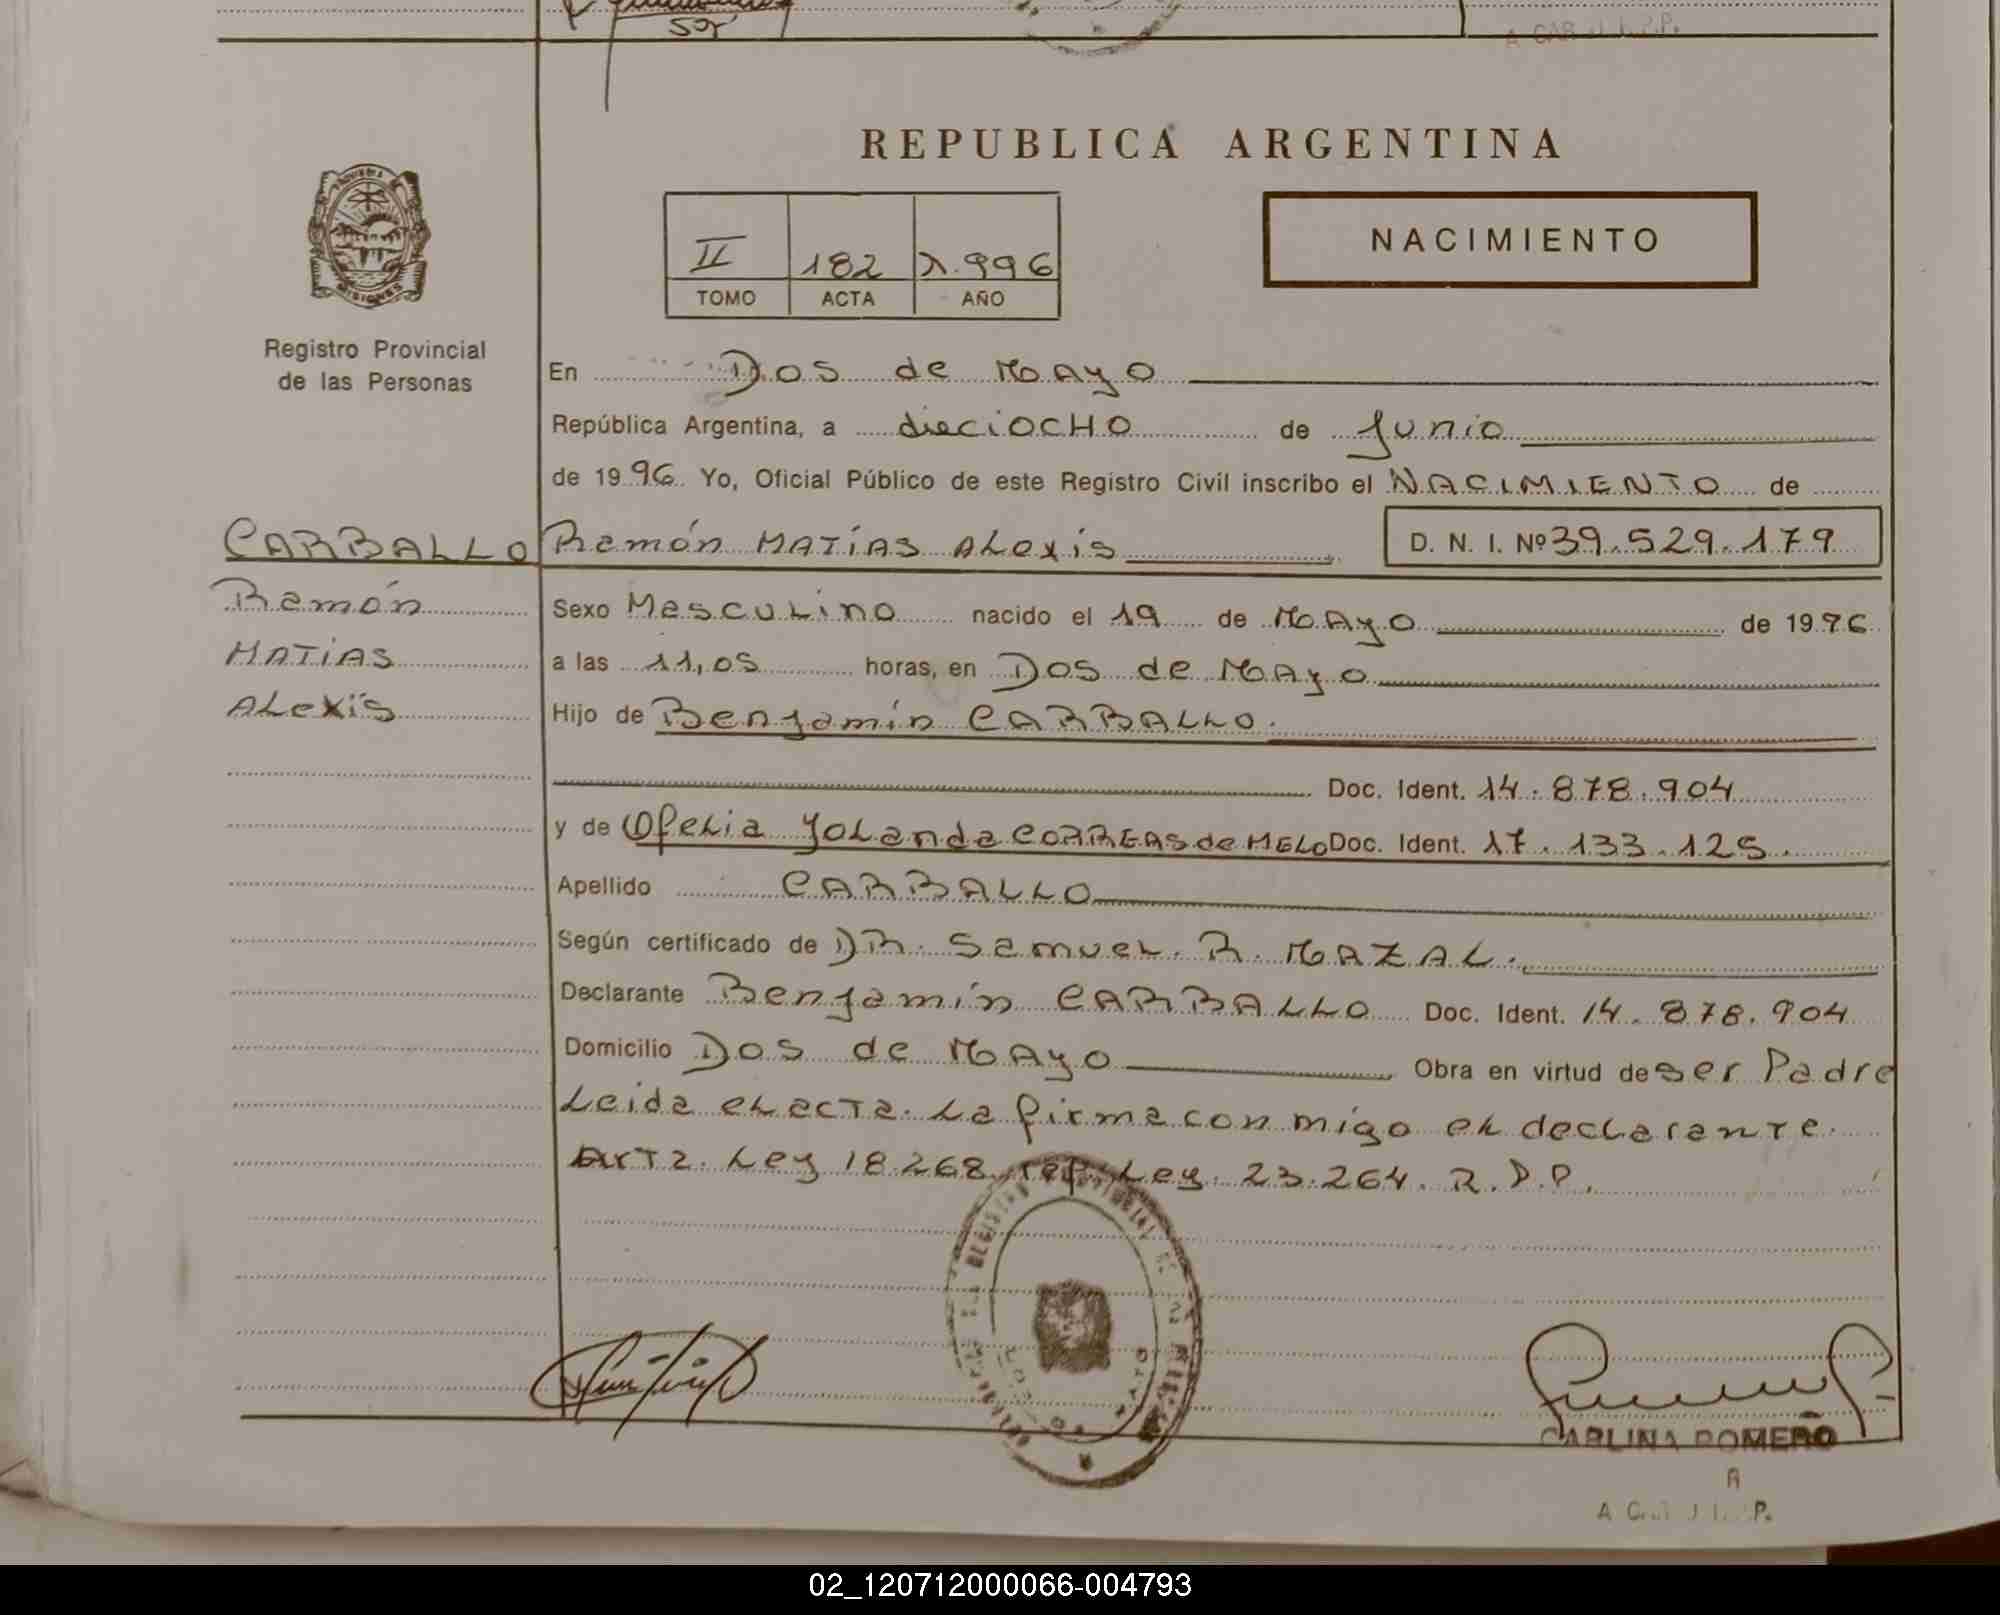 REPUBLICA ARGENTINA
II 182 1.996
TOMO ACTA AÑO
NACIMIENTO
MISIONES
Registro Provincial
de las Personas
En Dos de Mayo
República Argentina, a dieciOCHO de Junio
de 1996 Yo, Oficial Público de este Registro Civil inscribo el NACIMIENTO de
CARBALLO Ramón MATÍAS ALexis D. N. I. Nº 39.529.179
Ramón
MATÍAS
ALexis
Sexo MascuLino nacido el 19 de MAyo de 1996
a las 11,05 horas, en Dos de MAyo
Hijo de Benjamín CARBALLO.
Doc. Ident. 14.878.904
y de OfeLia YoLanda CORREAS de MELO Doc. Ident. 17.133.125.
Apellido CARBALLO
Según certificado de DR. SamueL. R. MAZAL.
Declarante Benjamín CARBALLO Doc. Ident. 14.878.904
Domicilio Dos de MAyo Obra en virtud de ser Padre
Leida eL acta. La firma conmigo eL decLarante.
Art 2. Ley 18.268 rep. Ley. 23.264. R.P.P.
CARLINA ROMERO
02_120712000066-004793